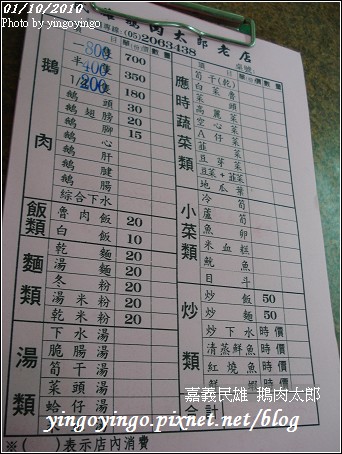 01/10/2010
Photo by yingoyingo
鵝肉太郎老店
專線:(05)2063438
桌號
鵝肉
一隻 800 700
半隻 400 350
1/2隻 200 180
鵝頭 30
鵝翅膀 20
鵝腳 15
鵝心
鵝肝
鵝腱
鵝腸
綜合下水
飯類
魯肉飯 20
白飯 10
麵類
乾麵 20
湯麵 20
冬粉 20
湯米粉 20
乾米粉 20
湯類
下水湯
脆腸湯
筍干湯
菜頭湯
蛤仔湯
應時蔬菜類
項目
筍干(乾)
白菜膏
菜頭
高麗菜
空心菜
A仔菜
韮菜
豆芽菜
豆菜+韮菜
地瓜葉
小菜類
冷筍
蘆筍
魚卵
米血糕
魷魚
目斗
炒類
炒飯 50
炒麵 50
炒下水 時價
清蒸鮮魚 時價
紅燒魚 時價
鮮蝦 時價
合計
※( )表示店內消費
嘉義民雄 鵝肉太郎
yingoyingo.pixnet.net/blog